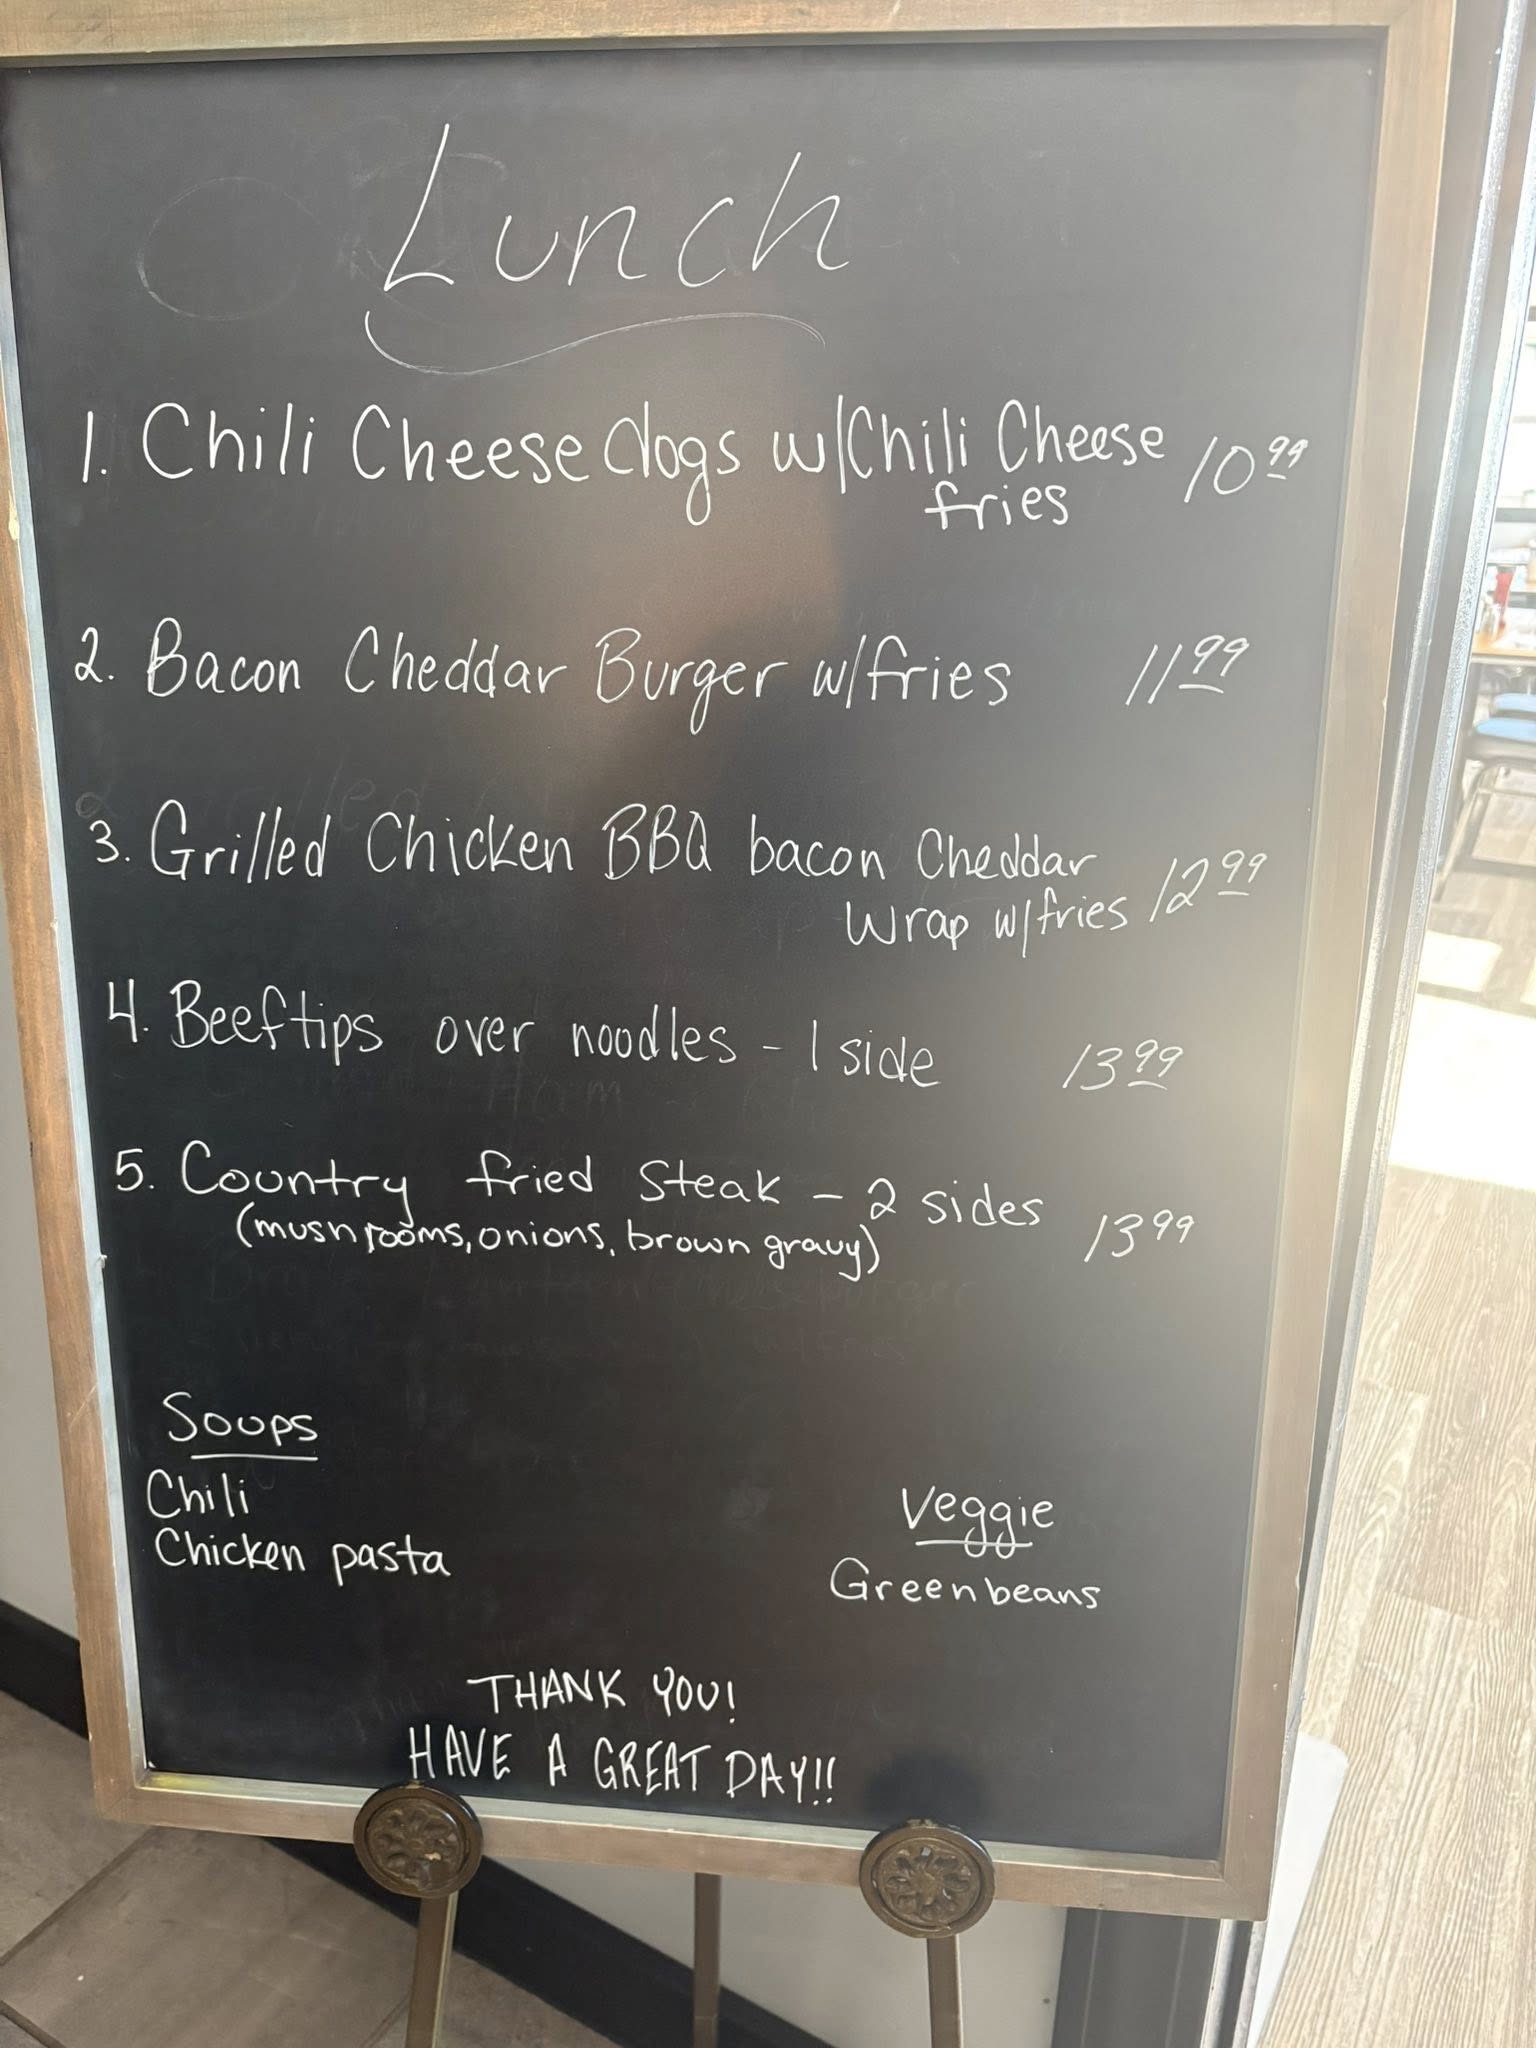 Lunch
1. Chili Cheese dogs w/Chili Cheese 10.99
fries
2. Bacon Cheddar Burger w/fries 11.99
3. Grilled Chicken BBQ bacon Cheddar
Wrap w/fries 12.99
4. Beef tips over noodles - 1 side 13.99
5. Country fried Steak - 2 sides
(mushrooms, onions, brown gravy) 13.99
Soups
Chili
Chicken pasta
Veggie
Green beans
THANK YOU!
HAVE A GREAT DAY!!